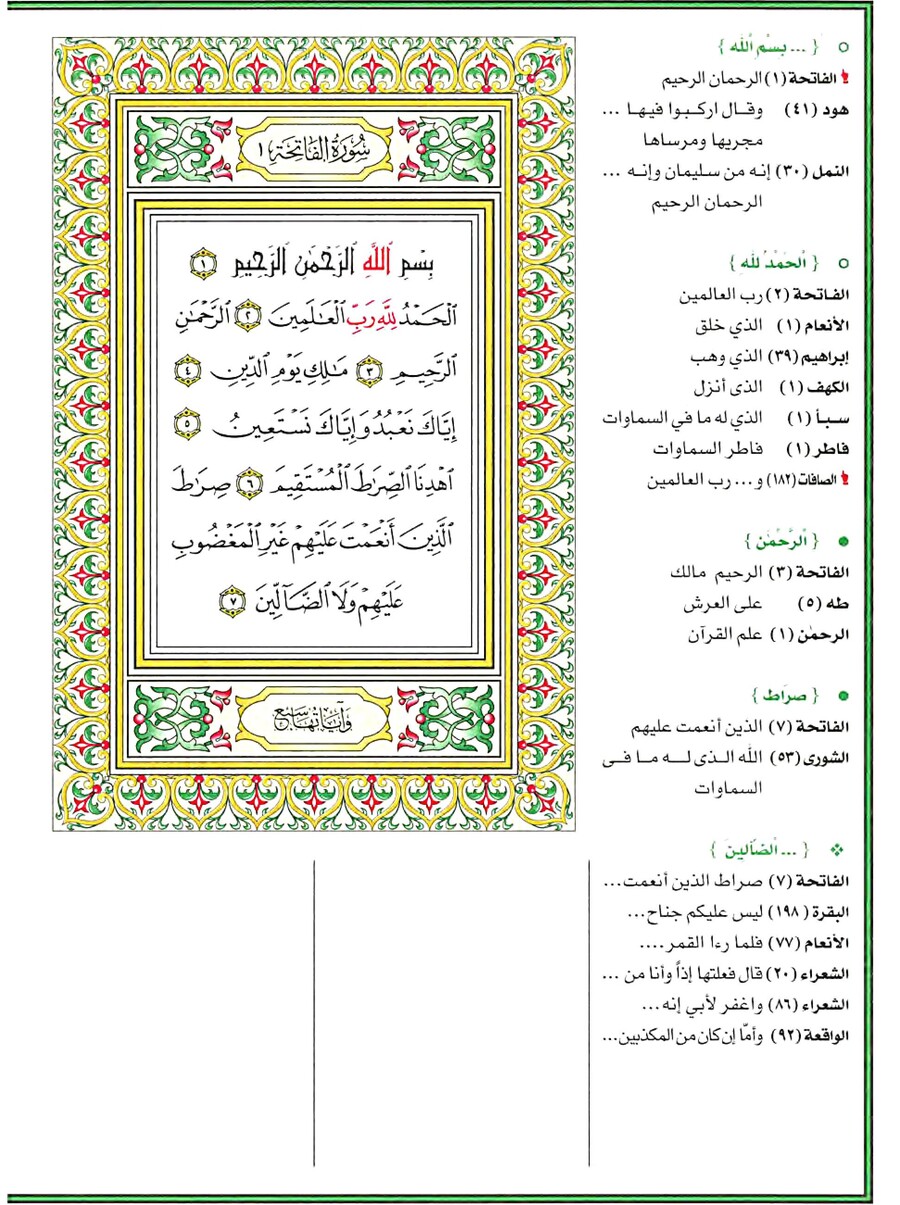 ○ { ... بِسْمِ ٱللَّهِ }
الفاتحة (١) الرحمان الرحيم
هود (٤١) وقال اركبوا فيها ...
مجريها ومرساها
النمل (٣٠) إنه من سليمان وإنه ...
الرحمان الرحيم
○ { ٱلْحَمْدُ لِلَّهِ }
الفاتحة (٢) رب العالمين
الأنعام (١) الذي خلق
إبراهيم (٣٩) الذي وهب
الكهف (١) الذى أنزل
سبأ (١) الذي له ما في السماوات
فاطر (١) فاطر السماوات
الصافات (١٨٢) و... رب العالمين
● { ٱلرَّحْمَٰنِ }
الفاتحة (٣) الرحيم مالك
طه (٥) على العرش
الرحمن (١) علم القرآن
● { صِرَاطَ }
الفاتحة (٧) الذين أنعمت عليهم
الشورى (٥٣) الله الذى له ما فى
السماوات
❖ { ... ٱلضَّآلِّينَ }
الفاتحة (٧) صراط الذين أنعمت...
البقرة (١٩٨) ليس عليكم جناح...
الأنعام (٧٧) فلما رءا القمر....
الشعراء (٢٠) قال فعلتها إذاً وأنا من ...
الشعراء (٨٦) واغفر لأبي إنه...
الواقعة (٩٢) وأمّا إن كان من المكذبين...
سُورَةُ الفَاتِحَةِ ١
بِسْمِ ٱللَّهِ ٱلرَّحْمَٰنِ ٱلرَّحِيمِ ١
ٱلْحَمْدُ لِلَّهِ رَبِّ ٱلْعَٰلَمِينَ ٢ ٱلرَّحْمَٰنِ
ٱلرَّحِيمِ ٣ مَٰلِكِ يَوْمِ ٱلدِّينِ ٤
إِيَّاكَ نَعْبُدُ وَإِيَّاكَ نَسْتَعِينُ ٥
ٱهْدِنَا ٱلصِّرَٰطَ ٱلْمُسْتَقِيمَ ٦ صِرَٰطَ
ٱلَّذِينَ أَنْعَمْتَ عَلَيْهِمْ غَيْرِ ٱلْمَغْضُوبِ
عَلَيْهِمْ وَلَا ٱلضَّآلِّينَ ٧
وَآيَاتُهَا سَبْعٌ